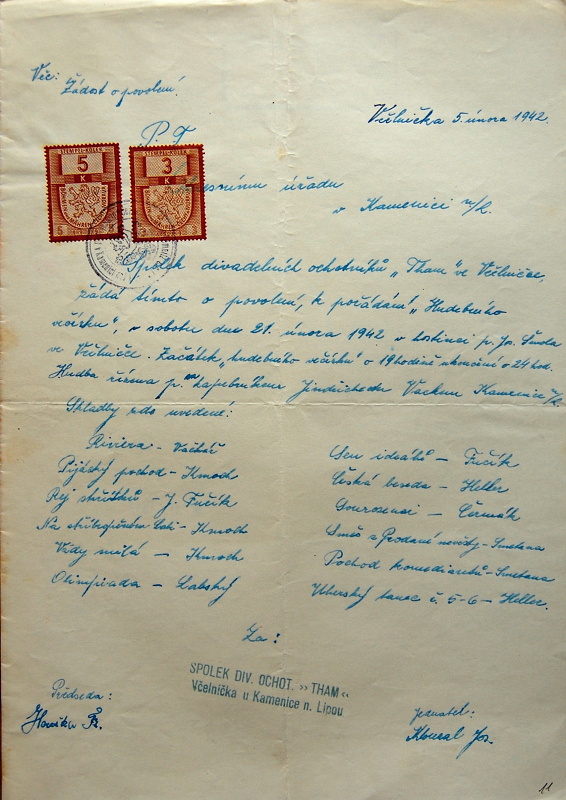 Věc: Žádost o povolení.
Včelnička 5. února 1942.
P. T.
STEMPEL-KOLEK
5
K
STEMPEL-KOLEK
3
K
úřadu
v Kamenici n/L.
Spolek divadelních ochotníků „Tham" ve Včelničce,
žádá tímto o povolení, k pořádání „Hudebního
večírku", v sobotu dne 21. února 1942 v hostinci p. Jos.
ve Včelničce. Začátek „hudebního večírku" o 19 hodině ukončení o 24 hod.
Hudba řízena p. Jindřichem Kamenice n/L.
Skladby zde uvedené:
Riviera - Vačkář
Pijácký pochod - Kmoch
Rej - J. Fučík
Na Kmoch
Vždy milá - Kmoch
Olimpiada - Labský
Sen ideálů - Fučík
Česká beseda - Heller
Sourozenci - Čermák
Směs z Prodané nevěsty - Smetana
Pochod komediantů - Smetana
Uherský tanec č. 5-6 - Heller.
Za:
SPOLEK DIV. OCHOT. »THAM«
Včelnička u Kamenice n. Lipou
Předseda:
Fr.
jednatel:
Jos.
11